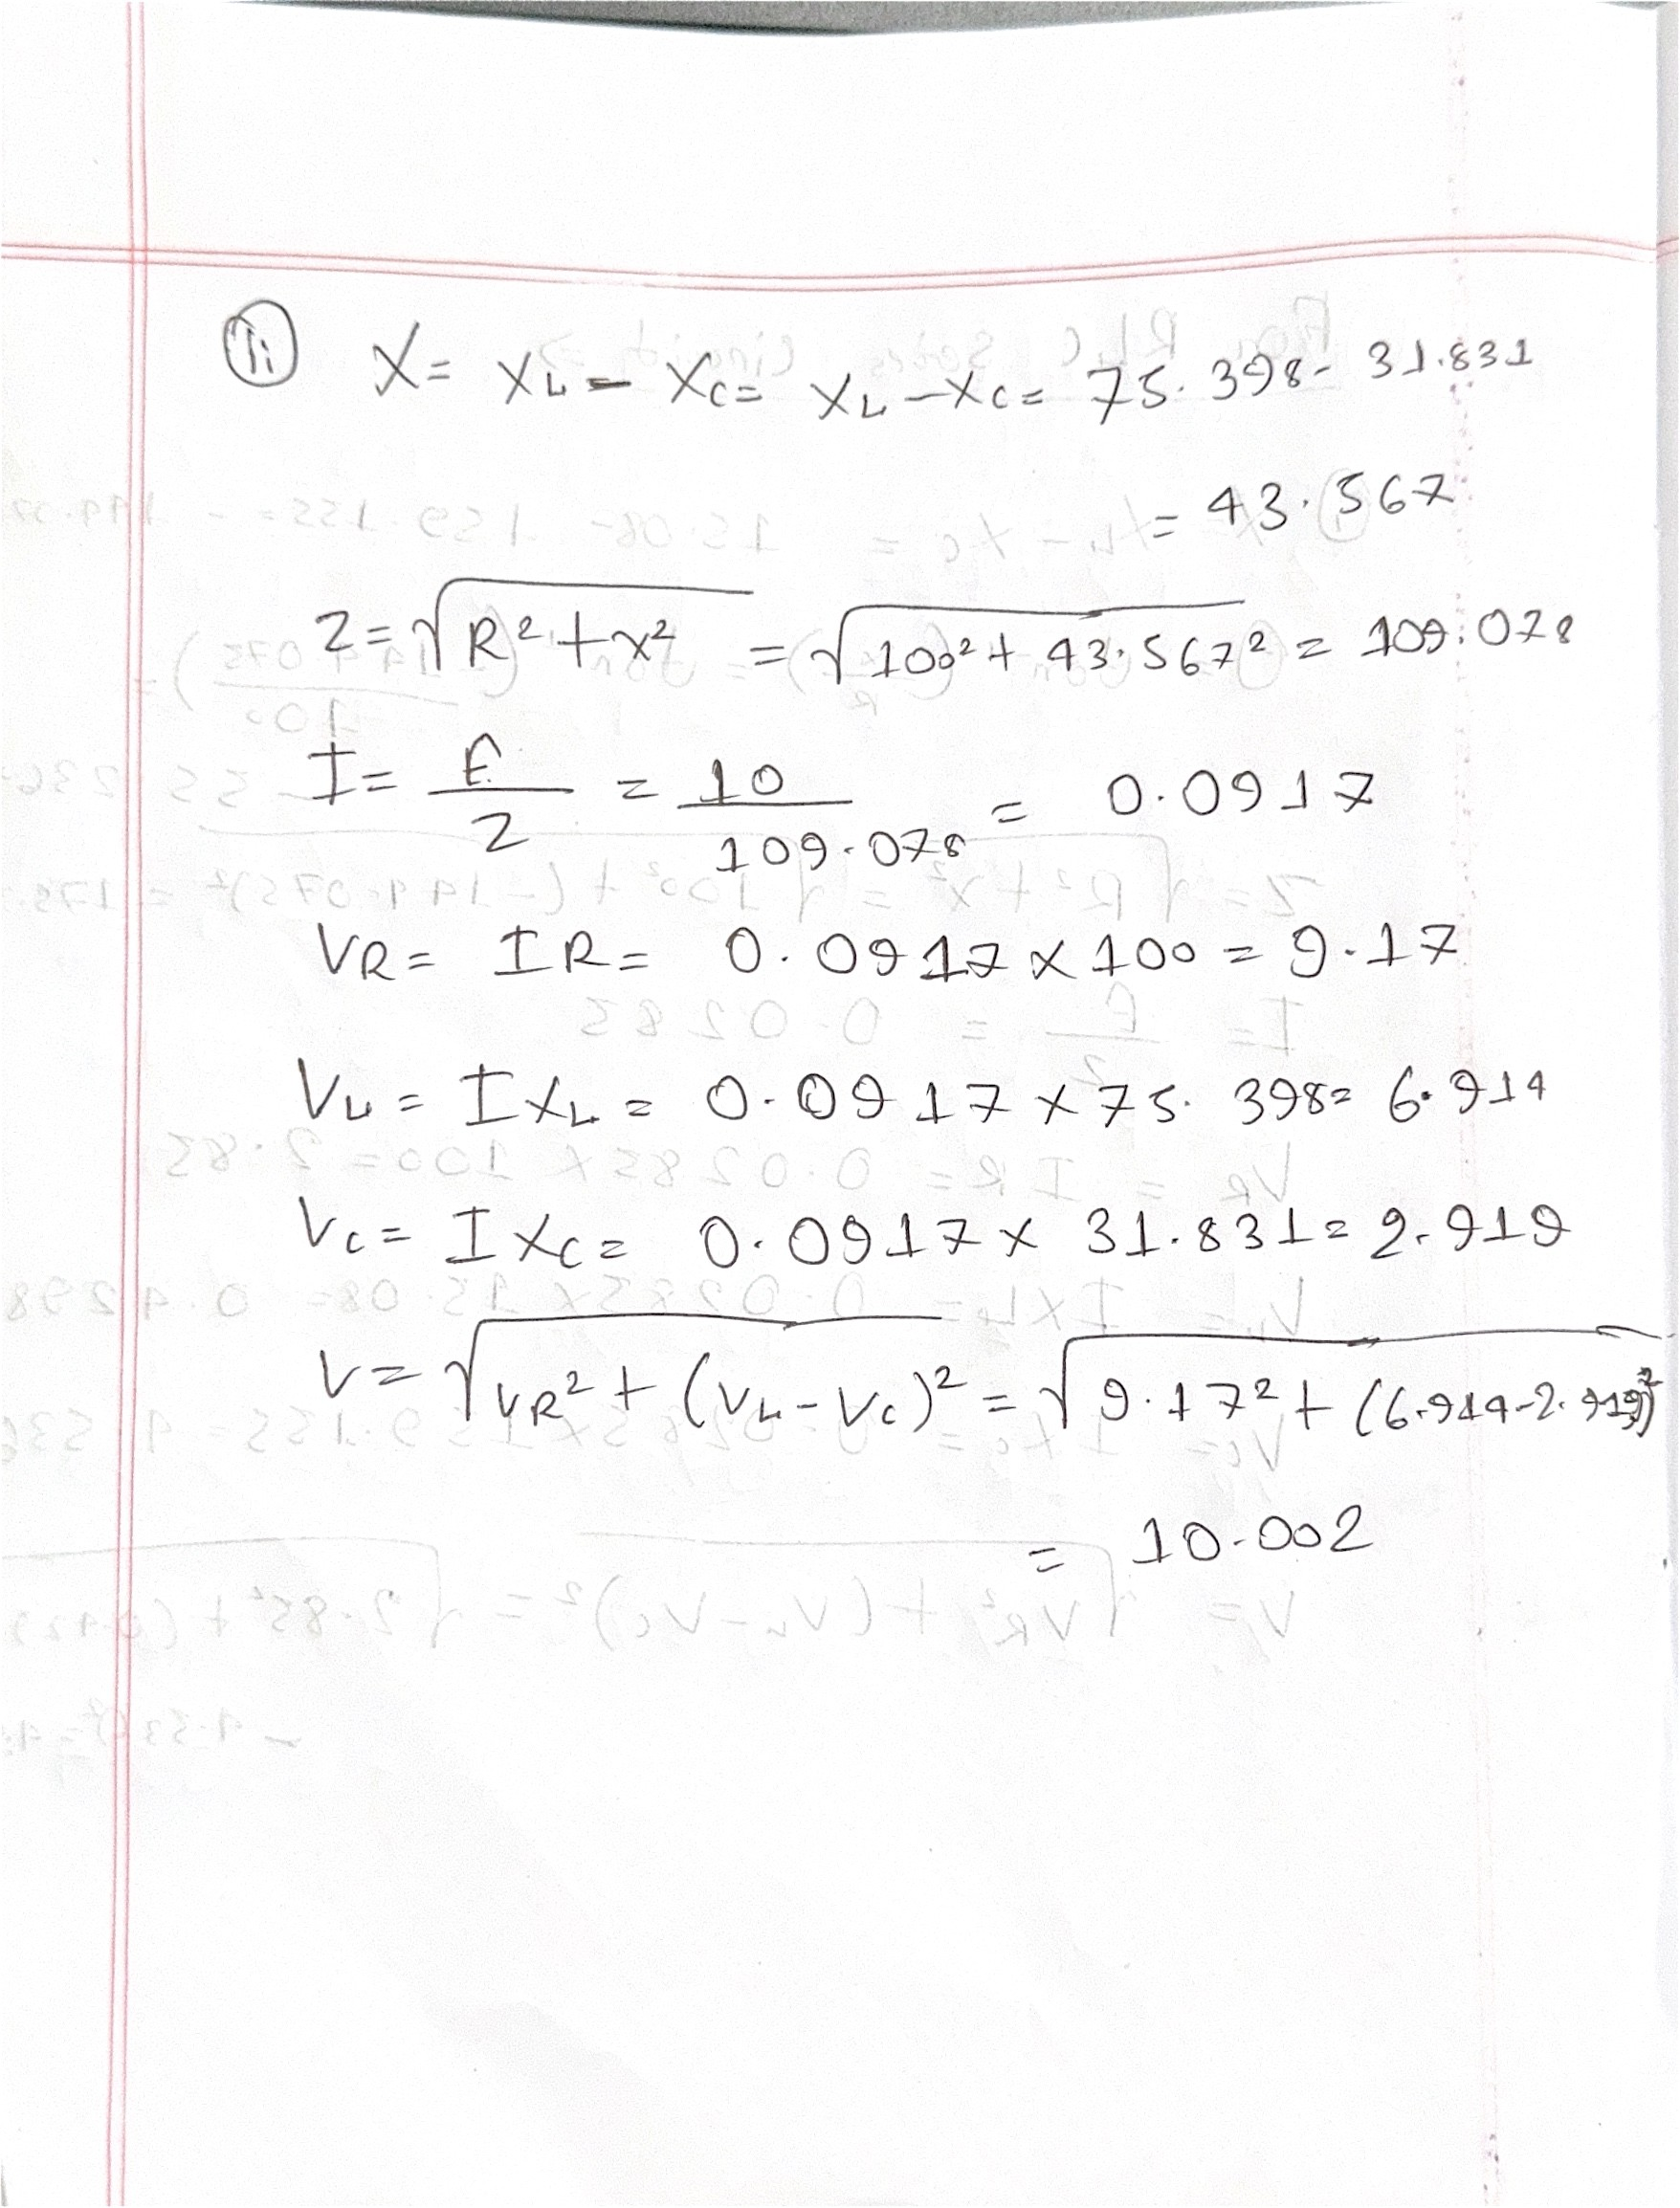 (ii) X = XL - XC = XL - XC = 75.398 - 31.831
= 43.567
Z = √R² + x² = √100² + 43.567² = 109.078
I = E/Z = 10/109.078 = 0.0917
VR = IR = 0.0917 x 100 = 9.17
VL = IXL = 0.0917 x 75.398 = 6.914
Vc = IXC = 0.0917 x 31.831 = 2.919
V = √VR² + (VL - Vc)² = √9.17² + (6.914 - 2.919)²
= 10.002